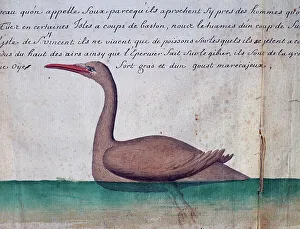 eau qu'on appelle Foux parcequ'ils aprochent sy pres des hommes qu'on
Tüe en certaines Isles a coups de baston, nous le tuames d'un coup de
de St Vincent, ils ne vivent que de poissons sur lesquels ils se jettent a
du haut des airs ainsi que l'Epervier fait sur le gibier, ils sont de la
Oÿe, fort gras et d'un goust marecajeux